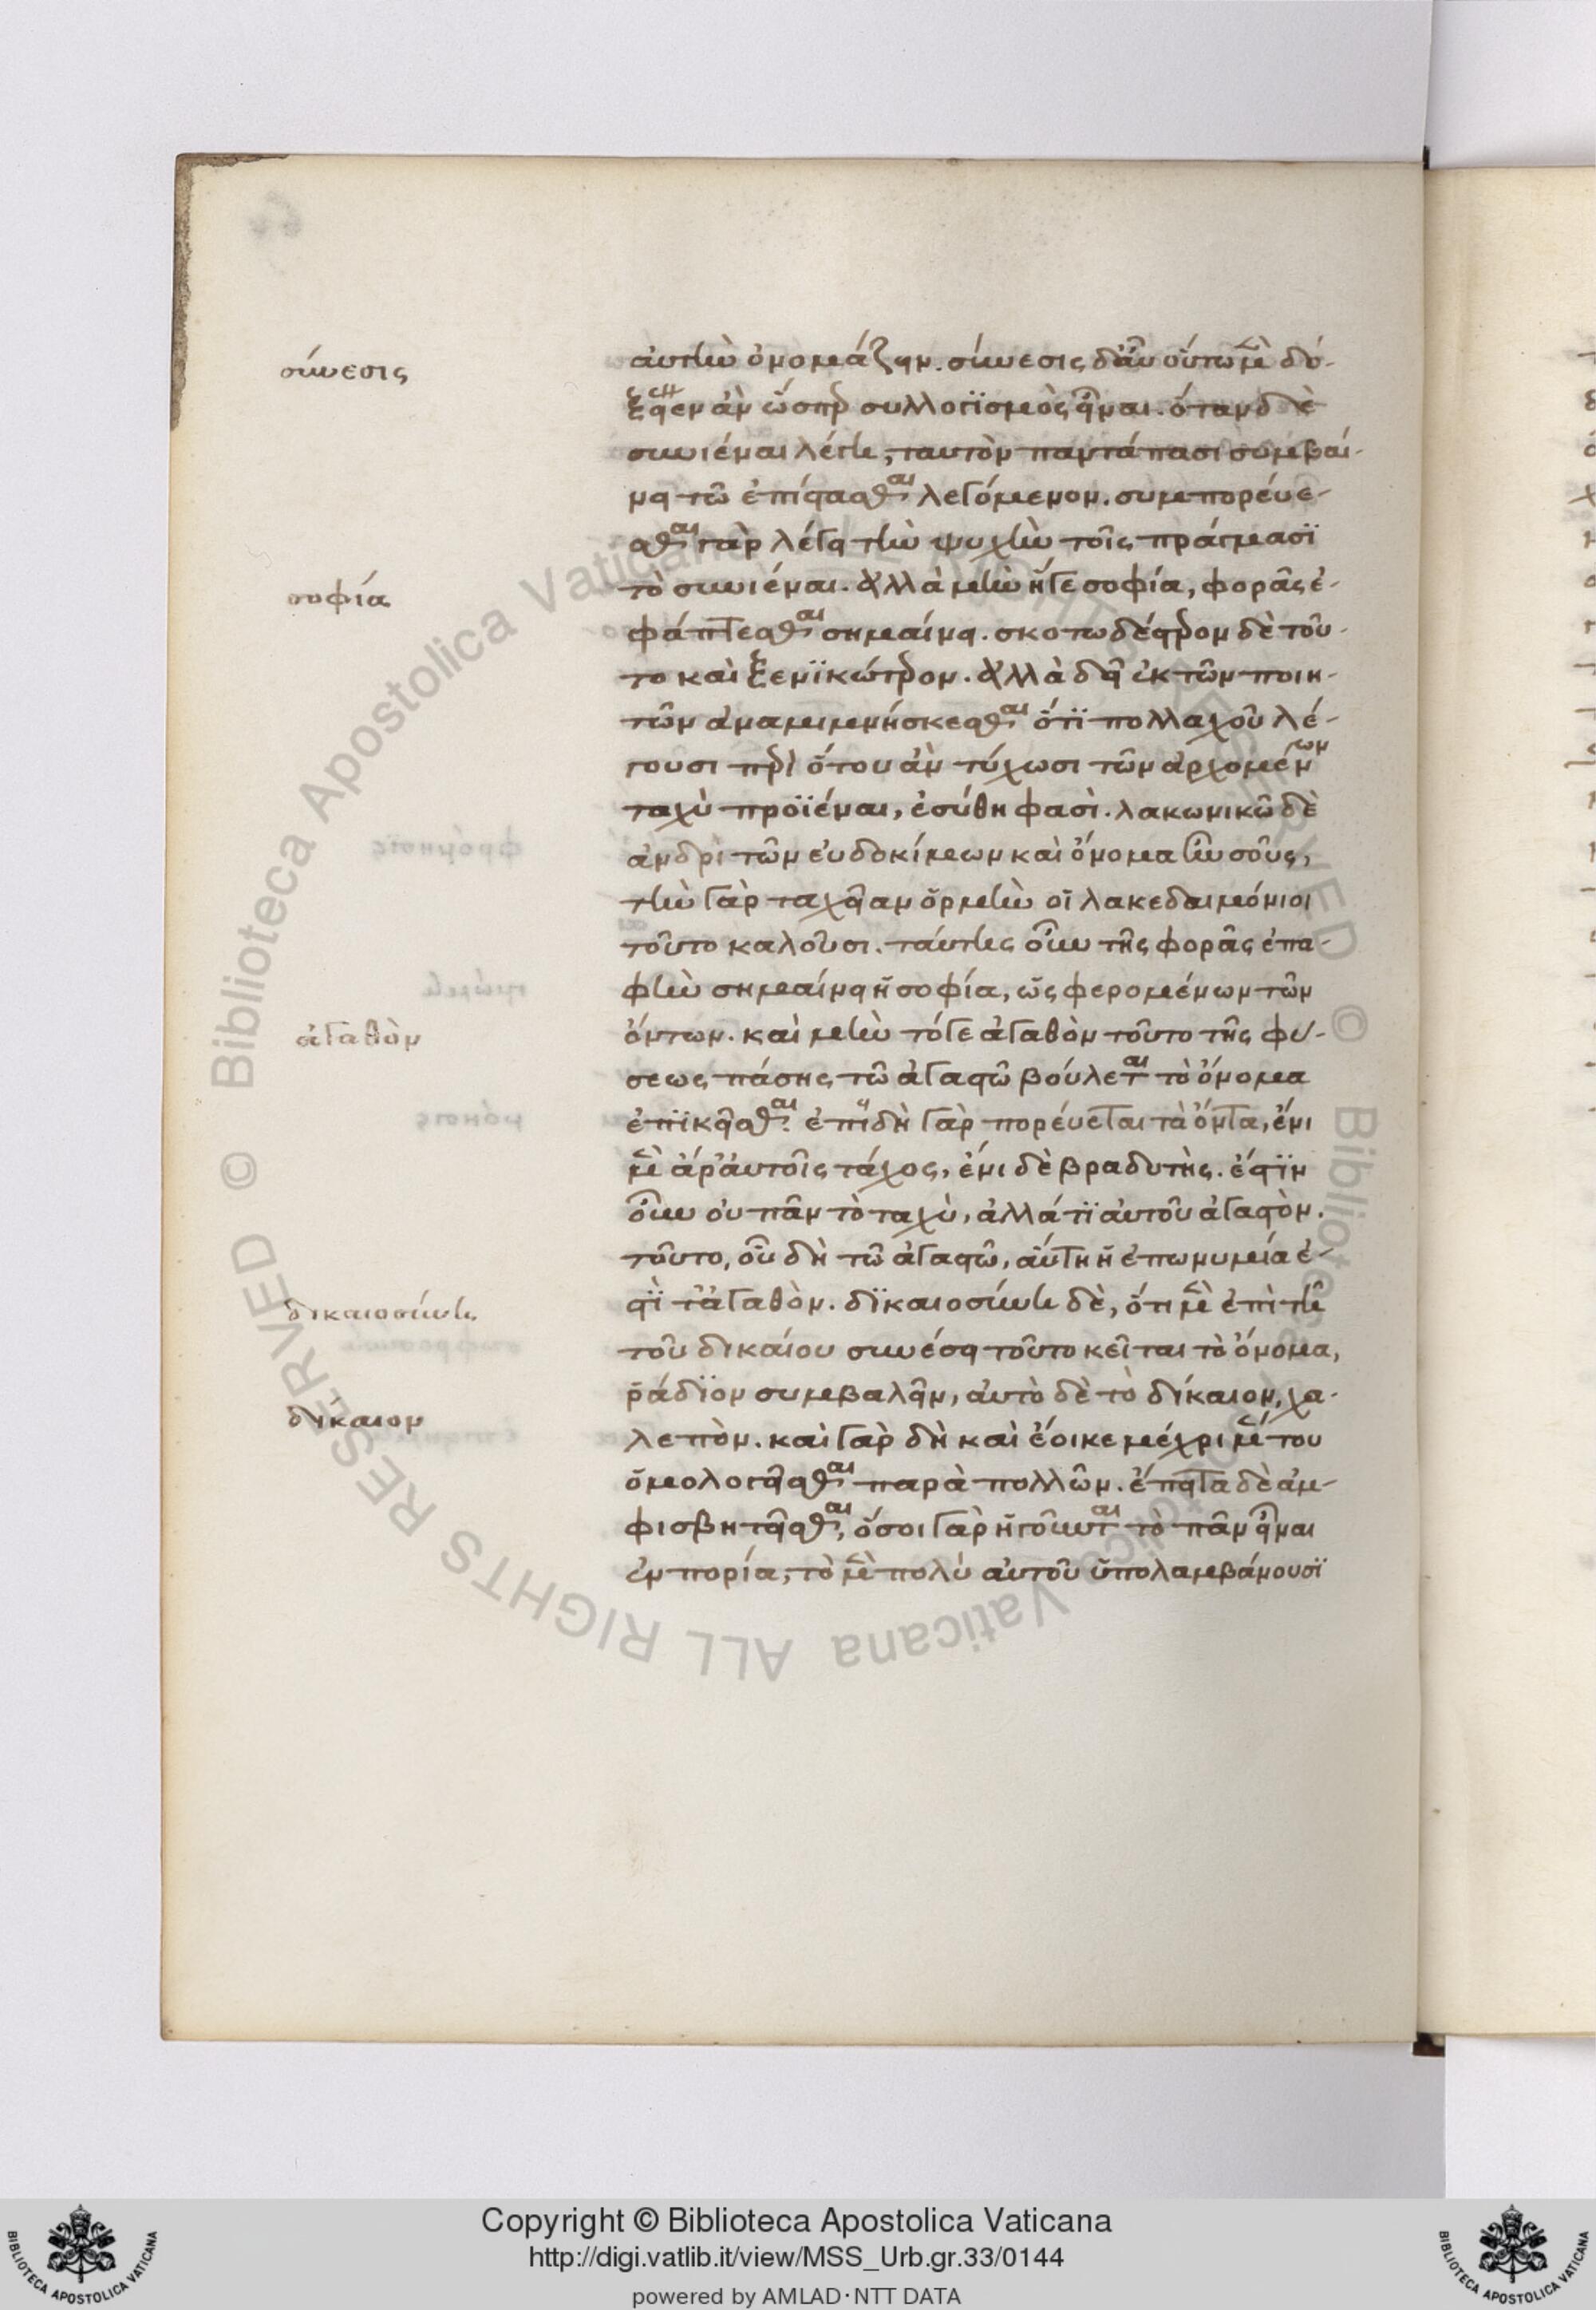 σύνεσις
αὐτὴν ὀνομάζειν. σύνεσις δ' ἂν οὕτω μὲν δό-
ξειεν ἂν ὥσπερ συλλογϊσμὸς εἶναι. ὅταν δὲ
συνιέναι λέγη, ταυτὸν παντάπασι συμβαί-
νει τῶ ἐπίστασθαι λεγόμενον. συμπορεύε-
σθαι γὰρ λέγει τὴν ψυχὴν τοῖς πράγμασϊ
σοφία
τὸ συνιέναι. ἀλλὰ μὴν ἥ γε σοφία, φορᾶς ἐ-
φάπτεσθαι σημαίνει. σκοτωδέστερον δὲ τοῦ-
το καὶ ξενϊκώτερον. ἀλλὰ δεῖ ἐκ τῶν ποιη-
τῶν ἀναμιμνήσκεσθαι ὅτϊ πολλαχοῦ λέ-
γουσι περὶ ὅτου ἂν τύχωσι τῶν ἀρχομένων
ταχὺ προϊέναι, ἐσύθη φασὶ. λακωνικῶ δὲ
ἀνδρὶ τῶν εὐδοκίμων καὶ ὄνομα ἦν σοῦς,
τὴν γὰρ ταχεῖαν ὁρμὴν οἱ λακεδαιμόνιοι
τοῦτο καλοῦσι. ταύτης οὖν τῆς φορᾶς ἐπα-
φὴν σημαίνει ἡ σοφία, ὡς φερομένων τῶν
ἀγαθὸν
ὄντων. καὶ μὴν τό γε ἀγαθὸν τοῦτο τῆς φύ-
σεως πάσης τῶ ἀγαστῶ βούλεται τὸ ὄνομα
ἐπϊκεῖσθαι. ἐπειδὴ γὰρ πορεύεται τὰ ὄντα, ἔνι
μὲν ἄρ' αὐτοῖς τάχος, ἔνι δὲ βραδυτὴς. ἔστϊν
οὖν οὐ πᾶν τὸ ταχὺ, ἀλλά τϊ αὐτοῦ ἀγαστὸν.
τοῦτο, οὗ δὴ τῶ ἀγαστῶ, αὕτη ἡ ἐπωνυμία ἐ-
δικαιοσύνη
στϊ τἀγαθὸν. δϊκαιοσύνη δὲ, ὅτι μὲν ἐπὶ τῆ
τοῦ δικαίου συνέσει τοῦτο κεῖται τὸ ὄνομα,
ῥάδϊον συμβαλεῖν, αὐτὸ δὲ τὸ δίκαιον, χα-
δίκαιον
λεπὸν. καὶ γὰρ δὴ καὶ ἔοικε μέχρι μέν του
ὁμολογεῖσθαι παρὰ πολλῶν. ἔπειτα δὲ ἀμ-
φισβητεῖσθαι, ὅσοι γὰρ ἡγοῦνται τὸ πᾶν εἶναι
ἐν πορία, τὸ μὲν πολὺ αὐτοῦ ὑπολαμβάνουσϊ
Copyright © Biblioteca Apostolica Vaticana
http://digi.vatlib.it/view/MSS_Urb.gr.33/0144
powered by AMLAD·NTT DATA
BIBLIOTECA APOSTOLICA VATICANA
BIBLIOTECA APOSTOLICA VATICANA
© Biblioteca Apostolica Vaticana ALL RIGHTS RESERVED
© Biblioteca Apostolica Vaticana ALL RIGHTS RESERVED